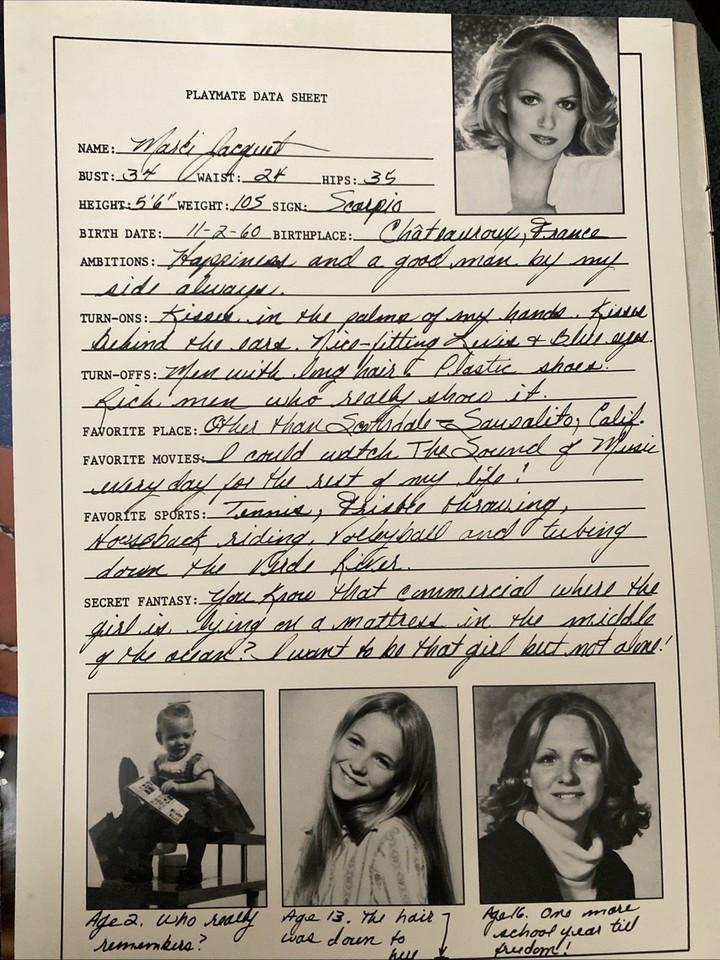 PLAYMATE DATA SHEET
NAME: Marci Jacquet
BUST: 34 WAIST: 24 HIPS: 35
HEIGHT: 5'6" WEIGHT: 105 SIGN: Scorpio
BIRTH DATE: 11-2-60 BIRTHPLACE: Châteauroux, France
AMBITIONS: Happiness and a good man by my
side always.
TURN-ONS: Kisses in the palms of my hands. Kisses
behind the ears. Nice-fitting Levis & Blue eyes.
TURN-OFFS: Men with long hair & Plastic shoes.
Rich men who really show it.
FAVORITE PLACE: Other than Scottsdale - Sausalito, Calif.
FAVORITE MOVIES: I could watch The Sound of Music
every day for the rest of my life!
FAVORITE SPORTS: Tennis, Frisbee throwing,
Horseback riding, Volleyball and tubing
down the Verde River.
SECRET FANTASY: You know that commercial where the
girl is lying on a mattress in the middle
of the ocean? I want to be that girl but not alone!
Age 2. Who really
remembers?
Age 13. The hair
was down to
here
Age 16. One more
school year til
freedom!